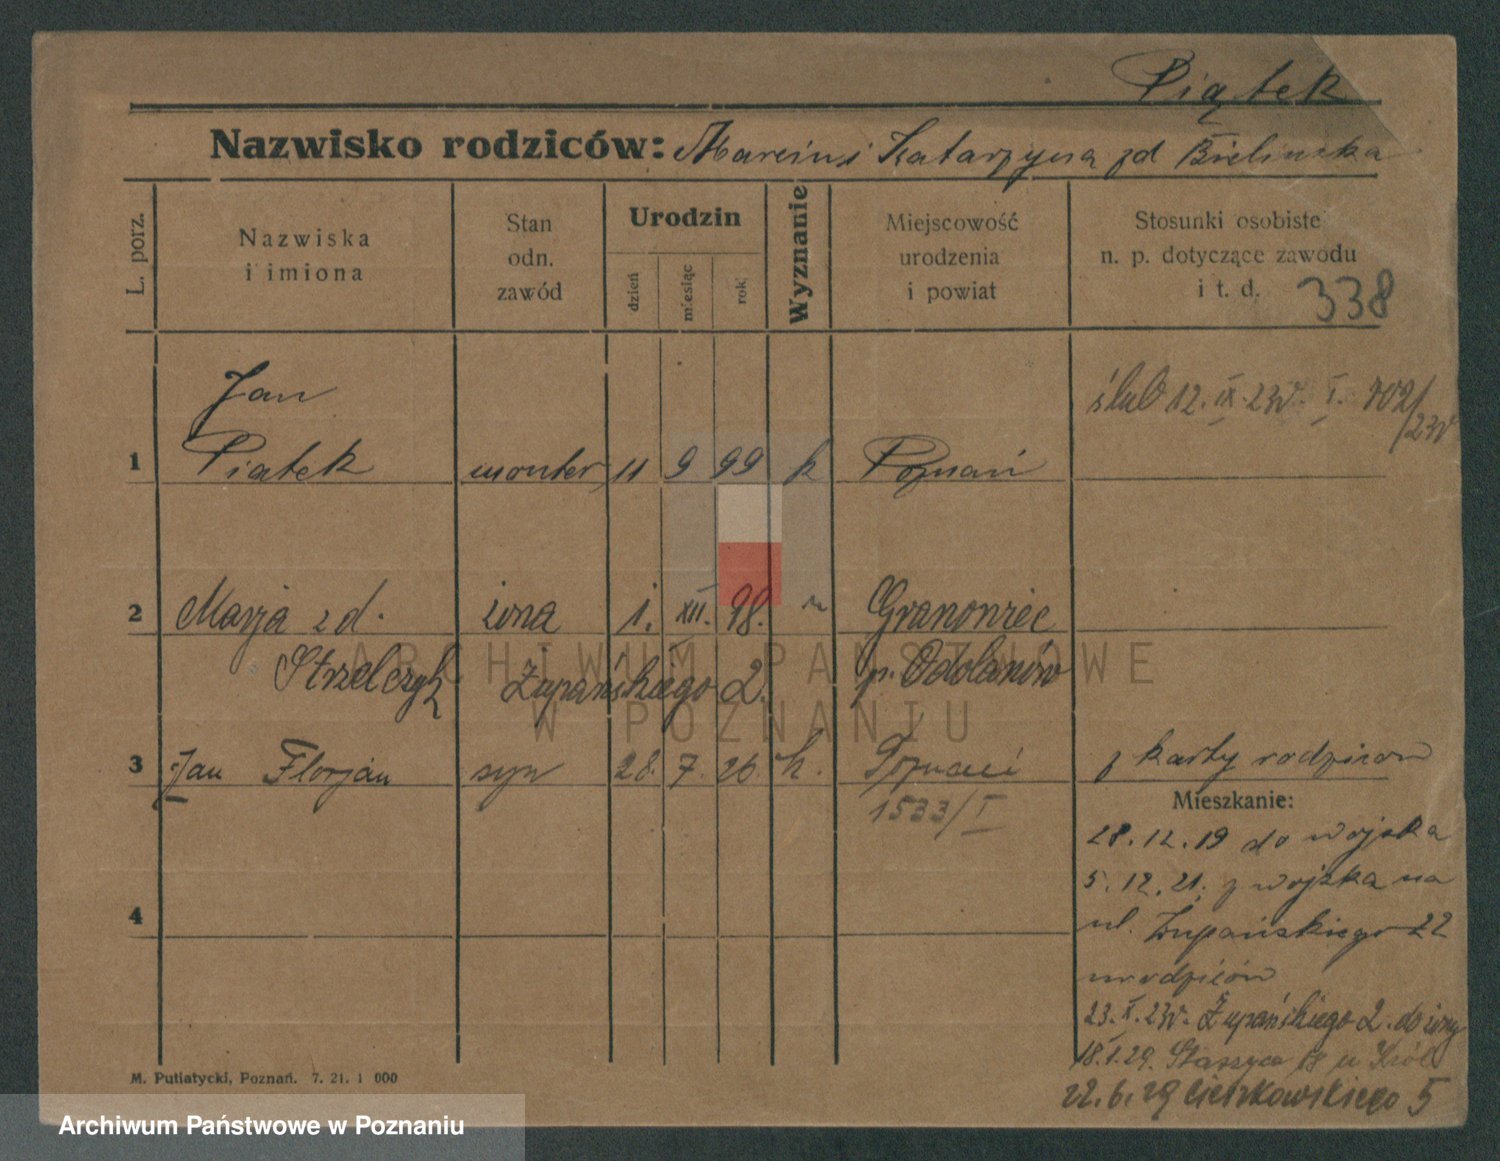 Piątek
Nazwisko rodziców: Marcin i Katarzyna zd Bielinska
L. porz.
Nazwiska
i imiona
Stan
odn.
zawód
Urodzin
dzień
miesiąc
rok
Wyznanie
Miejscowość
urodzenia
i powiat
Stosunki osobiste
n. p. dotyczące zawodu
i t. d.
338
Jan
ślub 12. IX. 23r. I. 702/23r
1 Piatek monter 11 9 99 k Poznań
2 Marja zd. żona 1. XII. 98. Granowiec
Strzelczyk Żupańskiego 2. p. Odolanów
3 Jan Florjan syn 28. 7. 26. k. Poznań z karty rodziców
1533/I
Mieszkanie:
28.12.19 do wojska
5.12.21. z wojska na
4
ul. Żupańskiego 22
u rodziców
23.X.23r. Żupańskiego 2. do żony
18.1.29. Staszyca 18 u Król
22.6.29 Cieszkowskiego 5
M. Putiatycki, Poznań. 7. 21. 1 000
ARCHIWUM PAŃSTWOWE
W POZNANIU
Archiwum Państwowe w Poznaniu